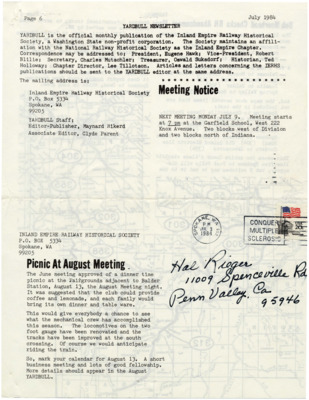 Page 6
July 1984
YARDBULL NEWSLETTER
YARDBULL is the official monthly publication of the Inland Empire Railway Historical
Society, a Washington State non-profit corporation. The Society maintains an affil-
iation with the National Railway Historical Society as the Inland Empire Chapter.
Correspondence may be addressed to: President, Eugene Hawk; Vice-President, Robert
Billie; Secretary, Charles Mutschler; Treasurer, Oswald Suksdorf; Historian, Ted
Holloway; Chapter Director, Lee Tillotson. Articles and letters concerning the IERHS
publications should be sent to the YARDBULL editor at the same address.
The mailing address is:
Inland Empire Railway Historical Society
P.O. Box 5334
Spokane, WA
99205
YARDBULL Staff;
Editor-Publisher, Maynard Rikerd
Associate Editor, Clyde Parent
Meeting Notice
NEXT MEETING MONDAY JULY 9. Meeting starts
at 7 pm at the Garfield School, West 222
Knox Avenue. Two blocks west of Division
and two blocks north of Indiana.
INLAND EMPIRE RAILWAY HISTORICAL SOCIETY
P.O. BOX 5334
Spokane, WA
99205
SPOKANE, WA
PM
1984
CONQUER
MULTIPLE
SCLEROSIS
Hal Riegger
11009 Spenceville Rd
Penn Valley, Ca
95946
Picnic At August Meeting
The June meeting approved of a dinner time
picnic at the Fairgrounds adjacent to Balder
Station, August 13, the August Meeting night.
It was suggested that the club could provide
coffee and lemonade, and each family would
bring its own dinner and table ware.
This would give everybody a chance to see
what the mechanical crew has accomplished
this season. The locomotives on the two
foot gauge have been renovated and the
tracks have been improved at the south
crossing. Of course we would anticipate
riding the train.
So, mark your calendar for August 13. A short
business meeting and lots of good fellowship.
More details should appear in the August
YARDBULL.